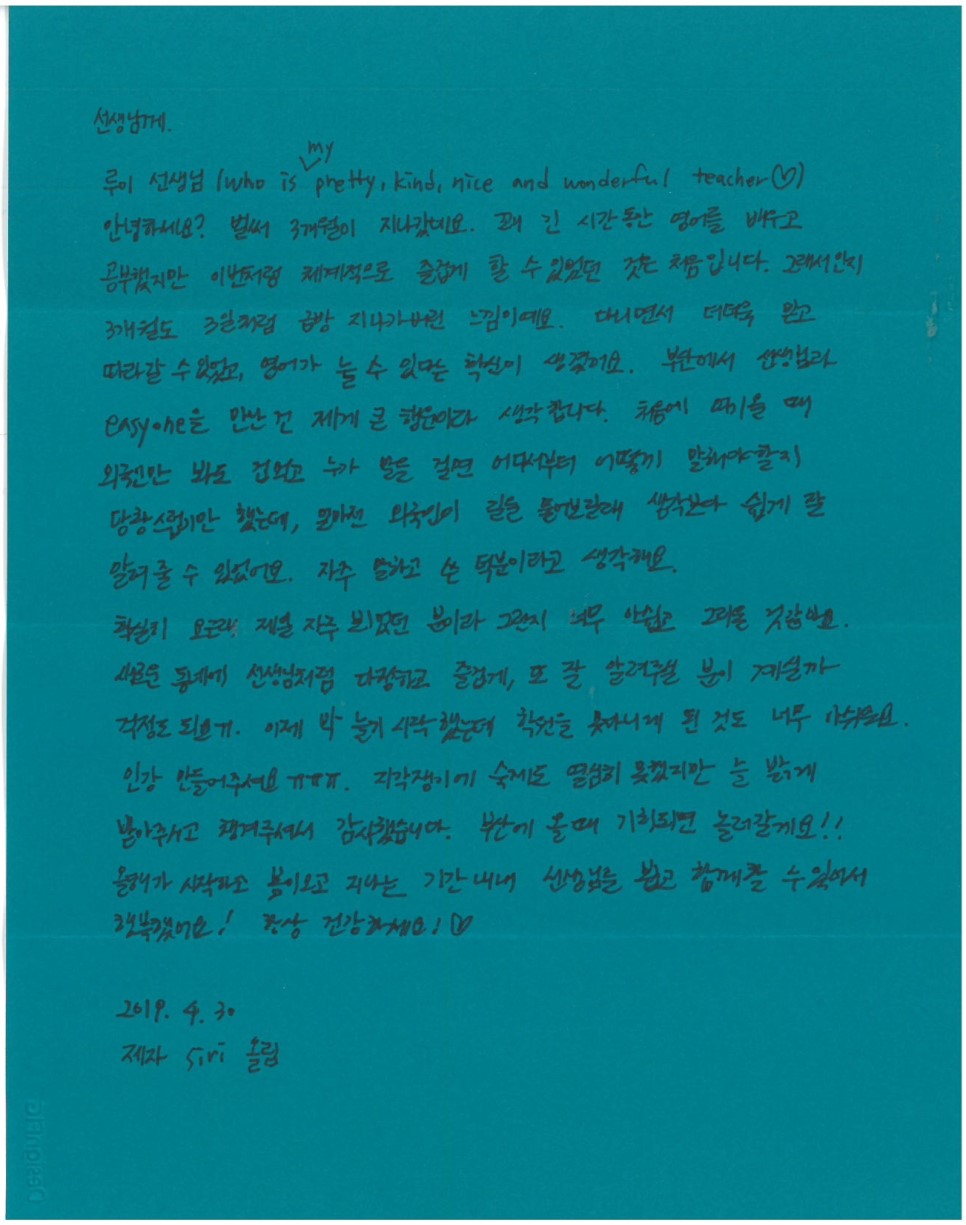 선생님께.
루이 선생님 (who is my pretty, kind, nice and wonderful teacher♡)
안녕하세요? 벌써 3개월이 지나갔네요. 꽤 긴 시간동안 영어를 배우고
공부했지만 이번처럼 체계적으로 즐겁게 할 수 있었던 것은 처음입니다. 그래서인지
3개월도 3일처럼 금방 지나가버린 느낌이에요. 다니면서 더더욱 믿고
따라갈 수 있었고, 영어가 늘 수 있다는 확신이 생겼어요. 부산에서 선생님과
easyone을 만난 건 제게 큰 행운이라 생각합니다. 처음에 다닐 때
외국인만 봐도 겁먹고 누가 말을 걸면 어디서부터 어떻게 말해야할지
당황스럽기만 했는데, 얼마전 외국인이 길을 물어보길래 생각보다 쉽게 잘
알려 줄 수 있었어요. 자주 말하고 쓴 덕분이라고 생각해요.
확실히 요근래 제일 자주 뵈었던 분이라 그런지 너무 아쉽고 그리울 것 같아요.
새로운 동네에 선생님처럼 다정하고 즐겁게, 또 잘 알려주실 분이 계실까
걱정도 되요ㅠ. 이제 막 늘기 시작했는데 학원을 못다니게 된 것도 너무 아쉬워요.
인강 만들어주세요 ㅠㅠㅠ. 지각쟁이에 숙제도 열심히 못했지만 늘 밝게
받아주시고 챙겨주셔서 감사했습니다. 부산에 올 때 기회되면 놀러갈게요!!
올해가 시작하고 봄이오고 지나는 기간 내내 선생님을 뵙고 함께할 수 있어서
행복했어요! 항상 건강하세요! ♡
2019. 4. 30
제자 siri 올림